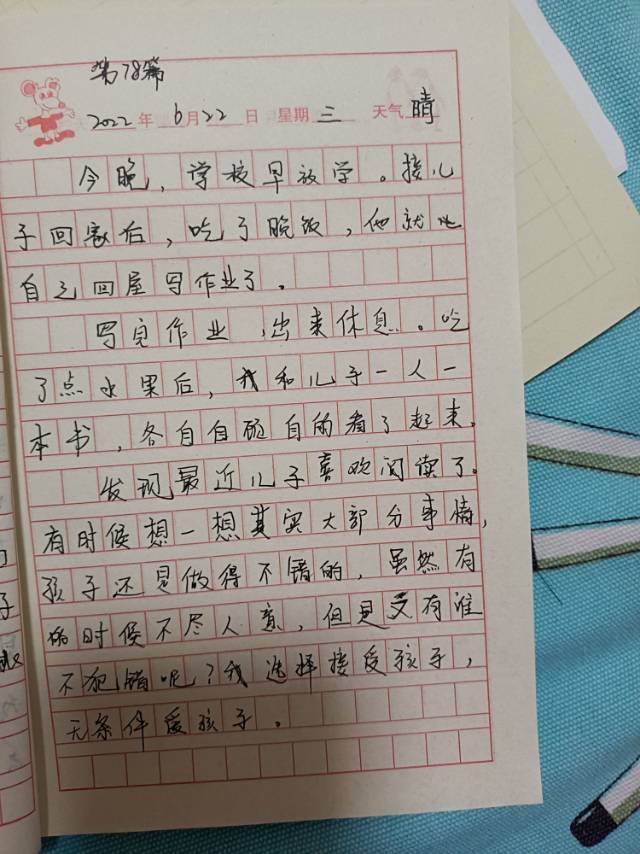 第78篇
2022年6月22日 星期三 天气晴
今晚，学校早放学。接儿
子回家后，吃了晚饭，他就
自己回屋写作业了。
写完作业，出来休息。吃
了点水果后，我和儿子一人一
本书，各自自顾自的看了起来。
发现最近儿子喜欢阅读了。
有时候想一想其实大部分事情，
孩子还是做得不错的，虽然有
的时候不尽人意，但是又有谁
不犯错呢？我选择接受孩子，
无条件爱孩子。